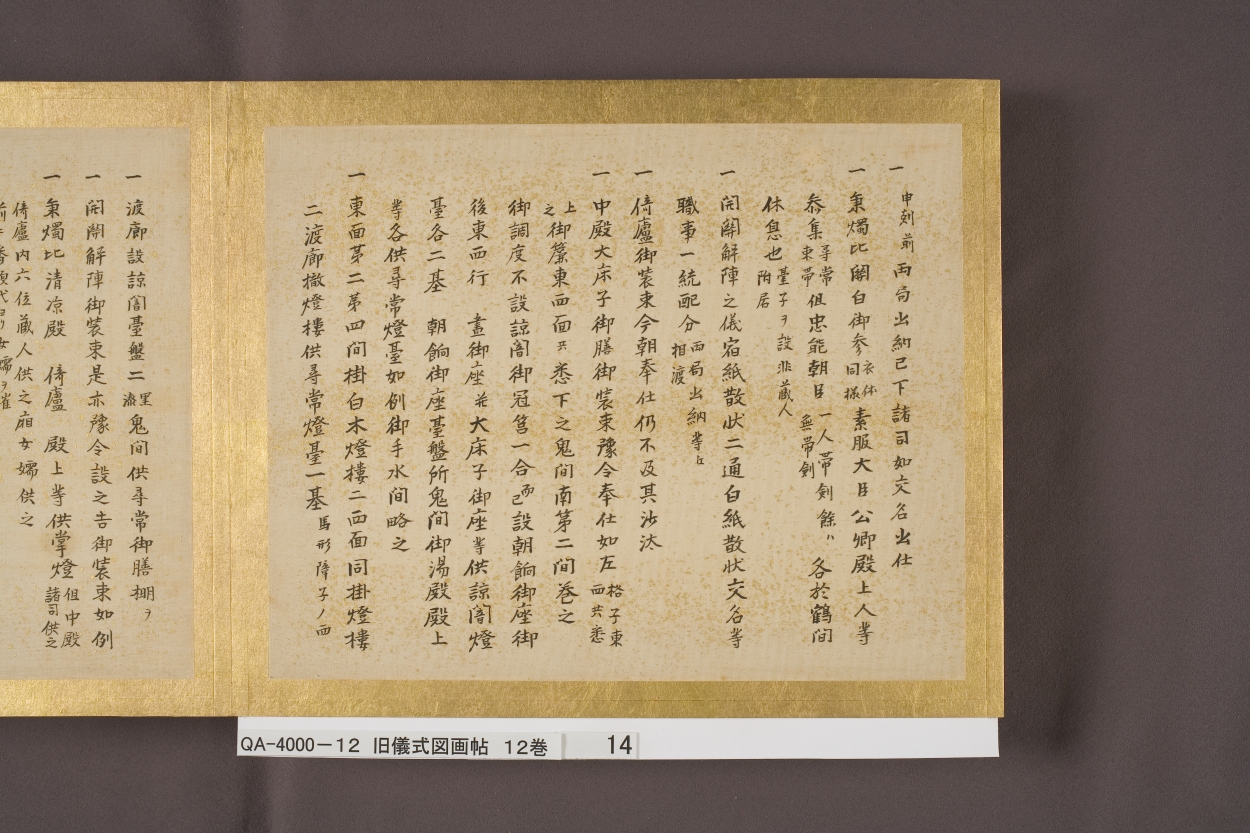 一 申刻前両局出納已下諸司如交名出仕
一 秉燭比関白御参衣体同様素服大臣公卿殿上人等
参集尋常束帯但忠能朝臣一人帯剣餘ハ無帯剣各於鶴間
休息也臺子ヲ設非蔵人附居
一 開關解陣之儀宿紙散状二通白紙散状交名等
職事一統配分両局出納等江相渡
一 倚廬御装束今朝奉仕仍不及其沙汰
一 中殿大床子御膳御装束豫令奉仕如左格子東面共悉
上之御簾東西面共悉下之鬼間南第二間巻之
御調度不設諒闇御冠筥一合而已設朝餉御座御
後東西行 晝御座並大床子御座等供諒闇燈
臺各二基 朝餉御座臺盤所鬼間御湯殿殿上
等各供尋常燈臺如例御手水間略之
一 東面第二第四間掛白木燈樓二西面同掛燈樓
二渡廊撤燈樓供尋常燈臺一基馬形障子ノ西
一 渡廊設諒闇臺盤二黒漆鬼間供尋常御膳棚ヲ
一 開關解陣御装束是亦豫令設之吉御装束如例
一 秉燭比清凉殿 倚廬 殿上等供掌燈但中殿諸司供之
倚廬内六位蔵人供之廂女嬬供之
QA-4000-12 旧儀式図画帖 12巻 14